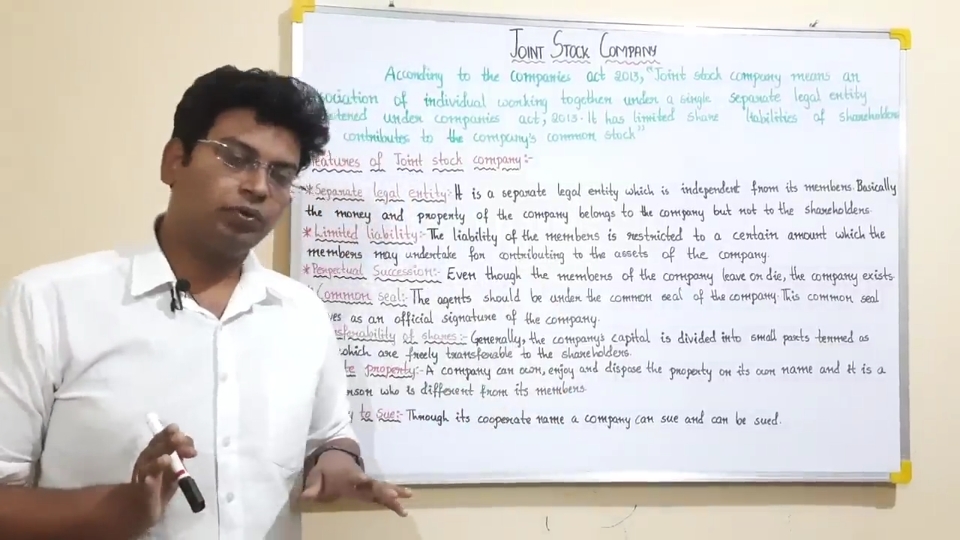 JOINT STOCK COMPANY
According to the companies act 2013, "Joint stock company means an
sociation of individual working together under a single separate legal entity
tened under companies act, 2013. It has limited share liabilities of shareholders
contributes to the company's common stock"
eatures of Joint stock company:-
*Separate legal entity:- It is a separate legal entity which is independent from its members. Basically
the money and property of the company belongs to the company but not to the shareholders.
*Limited liability:- The liability of the members is restricted to a certain amount which the
members may undertake for contributing to the assets of the company.
*Perpectual Succession:- Even though the members of the company leave or die, the company exists
Common seal:- The agents should be under the common seal of the company. This common seal
ves as an official signature of the company.
sferability of shares:- Generally, the company's capital is divided into small parts termed as
which are freely transferable to the shareholders.
te property:- A company can own, enjoy and dispose the property on its own name and it is a
rson who is different from its members.
y to sue:- Through its cooperate name a company can sue and can be sued.